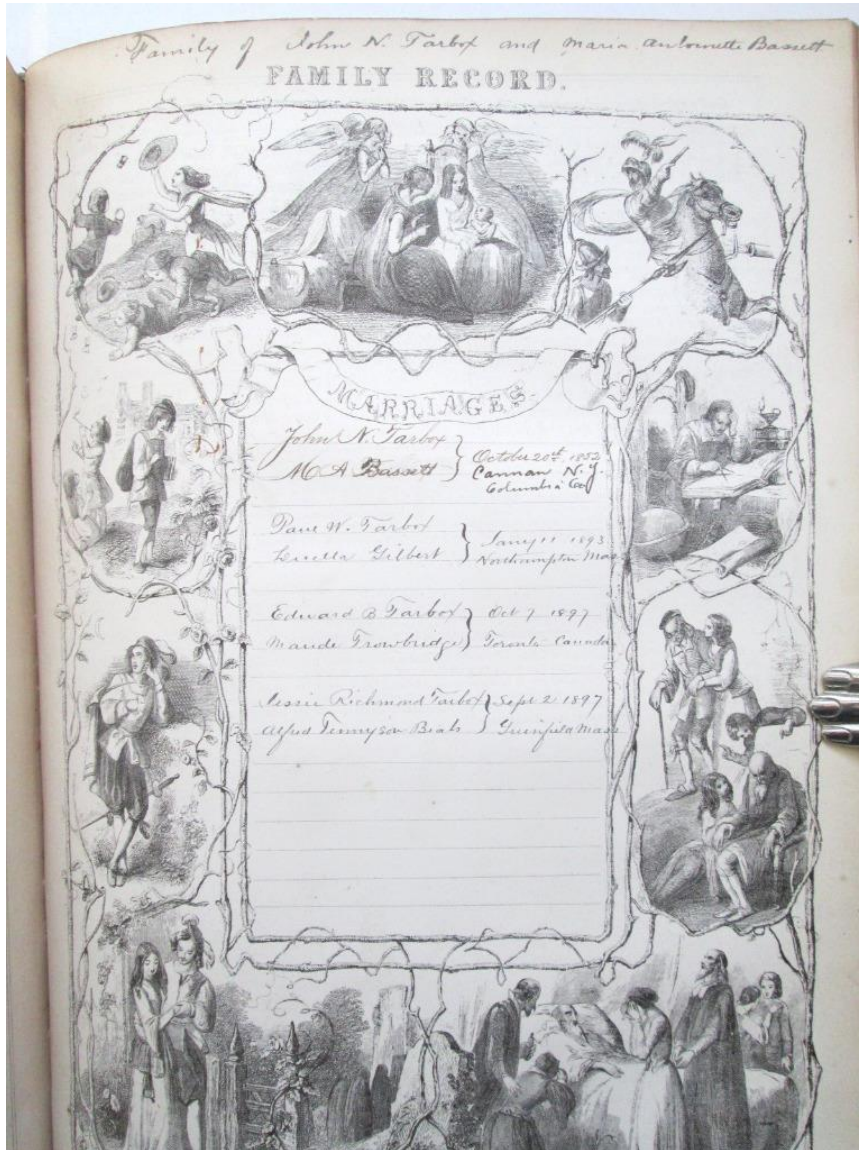 Family of John N. Tarbox and Maria Antoinette Bassett
FAMILY RECORD.
MARRIAGES.
John N. Tarbox
M A Bassett
October 20th 1852
Cannan N.Y.
Columbia Co
Paul W. Tarbox
Luella Gilbert
Jany 11 1893
Northampton Mass
Edward B Tarbox
Maude Trowbridge
Oct 7 1897
Toronto Canada
Jessie Richmond Tarbox
Alfred Tennyson Beals
Sept 2 1897
Greenfield Mass